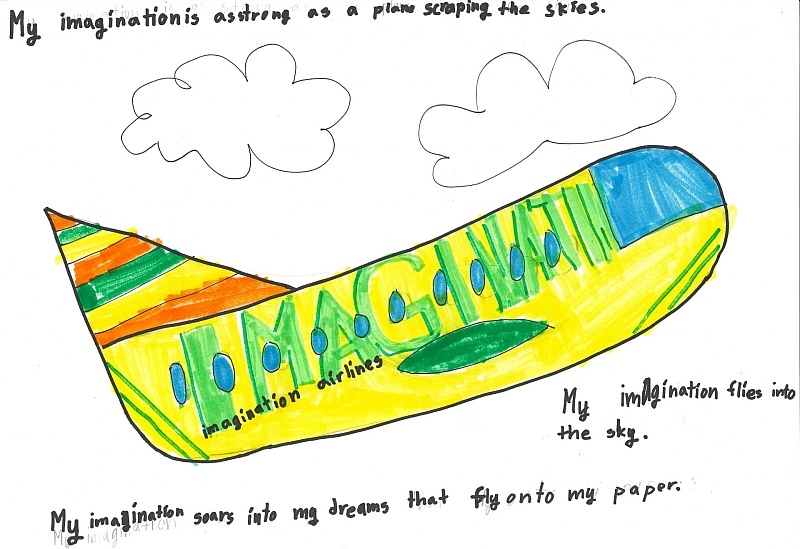 My imagination is as strong as a plane scraping the skies.
IMAGINATI
imagination airlines
My imAgination flies into
the sky.
My imagination soars into my dreams that fly onto my paper.